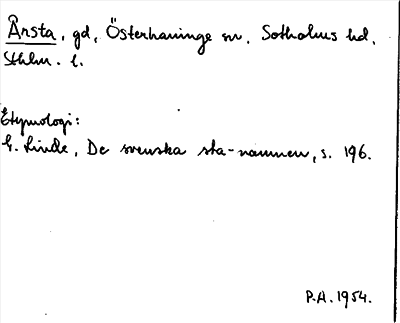 Årsta, gd, Österhaninge sn, Sotholms hd,
Sthlm. l.
Etymologi:
G. Linde, De svenska sta-namnen, s. 196.
P.H. 1954.